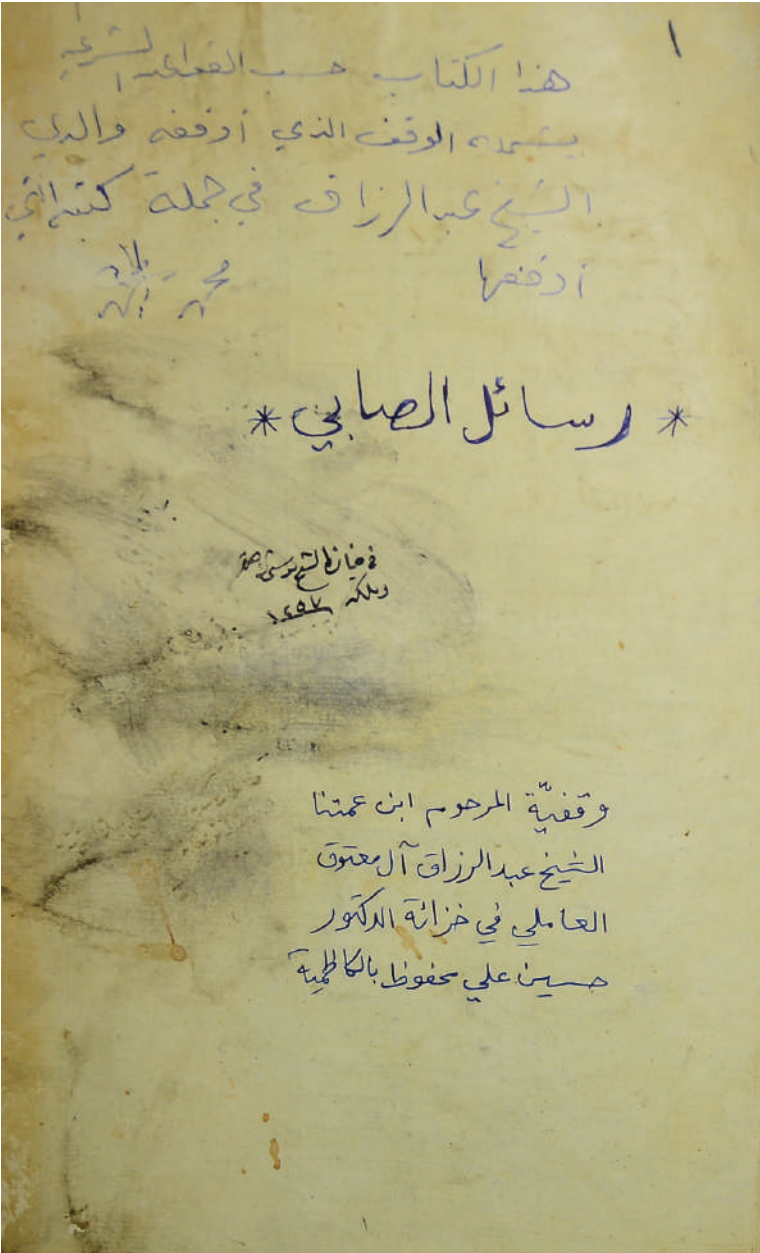 ١
هذا الكتاب حسب القواعد الشرعية
يشمله الوقف الذي أوقفه والدي
الشيخ عبد الرزاق في جملة كتبه التي
أوقفها
* رسائل الصابي *
في
وملكه ١٢٩٧
وقفيّة المرحوم ابن عمتنا
الشيخ عبد الرزاق آل معتوق
العاملي في خزانة الدكتور
حسين علي محفوظ بالكاظمية